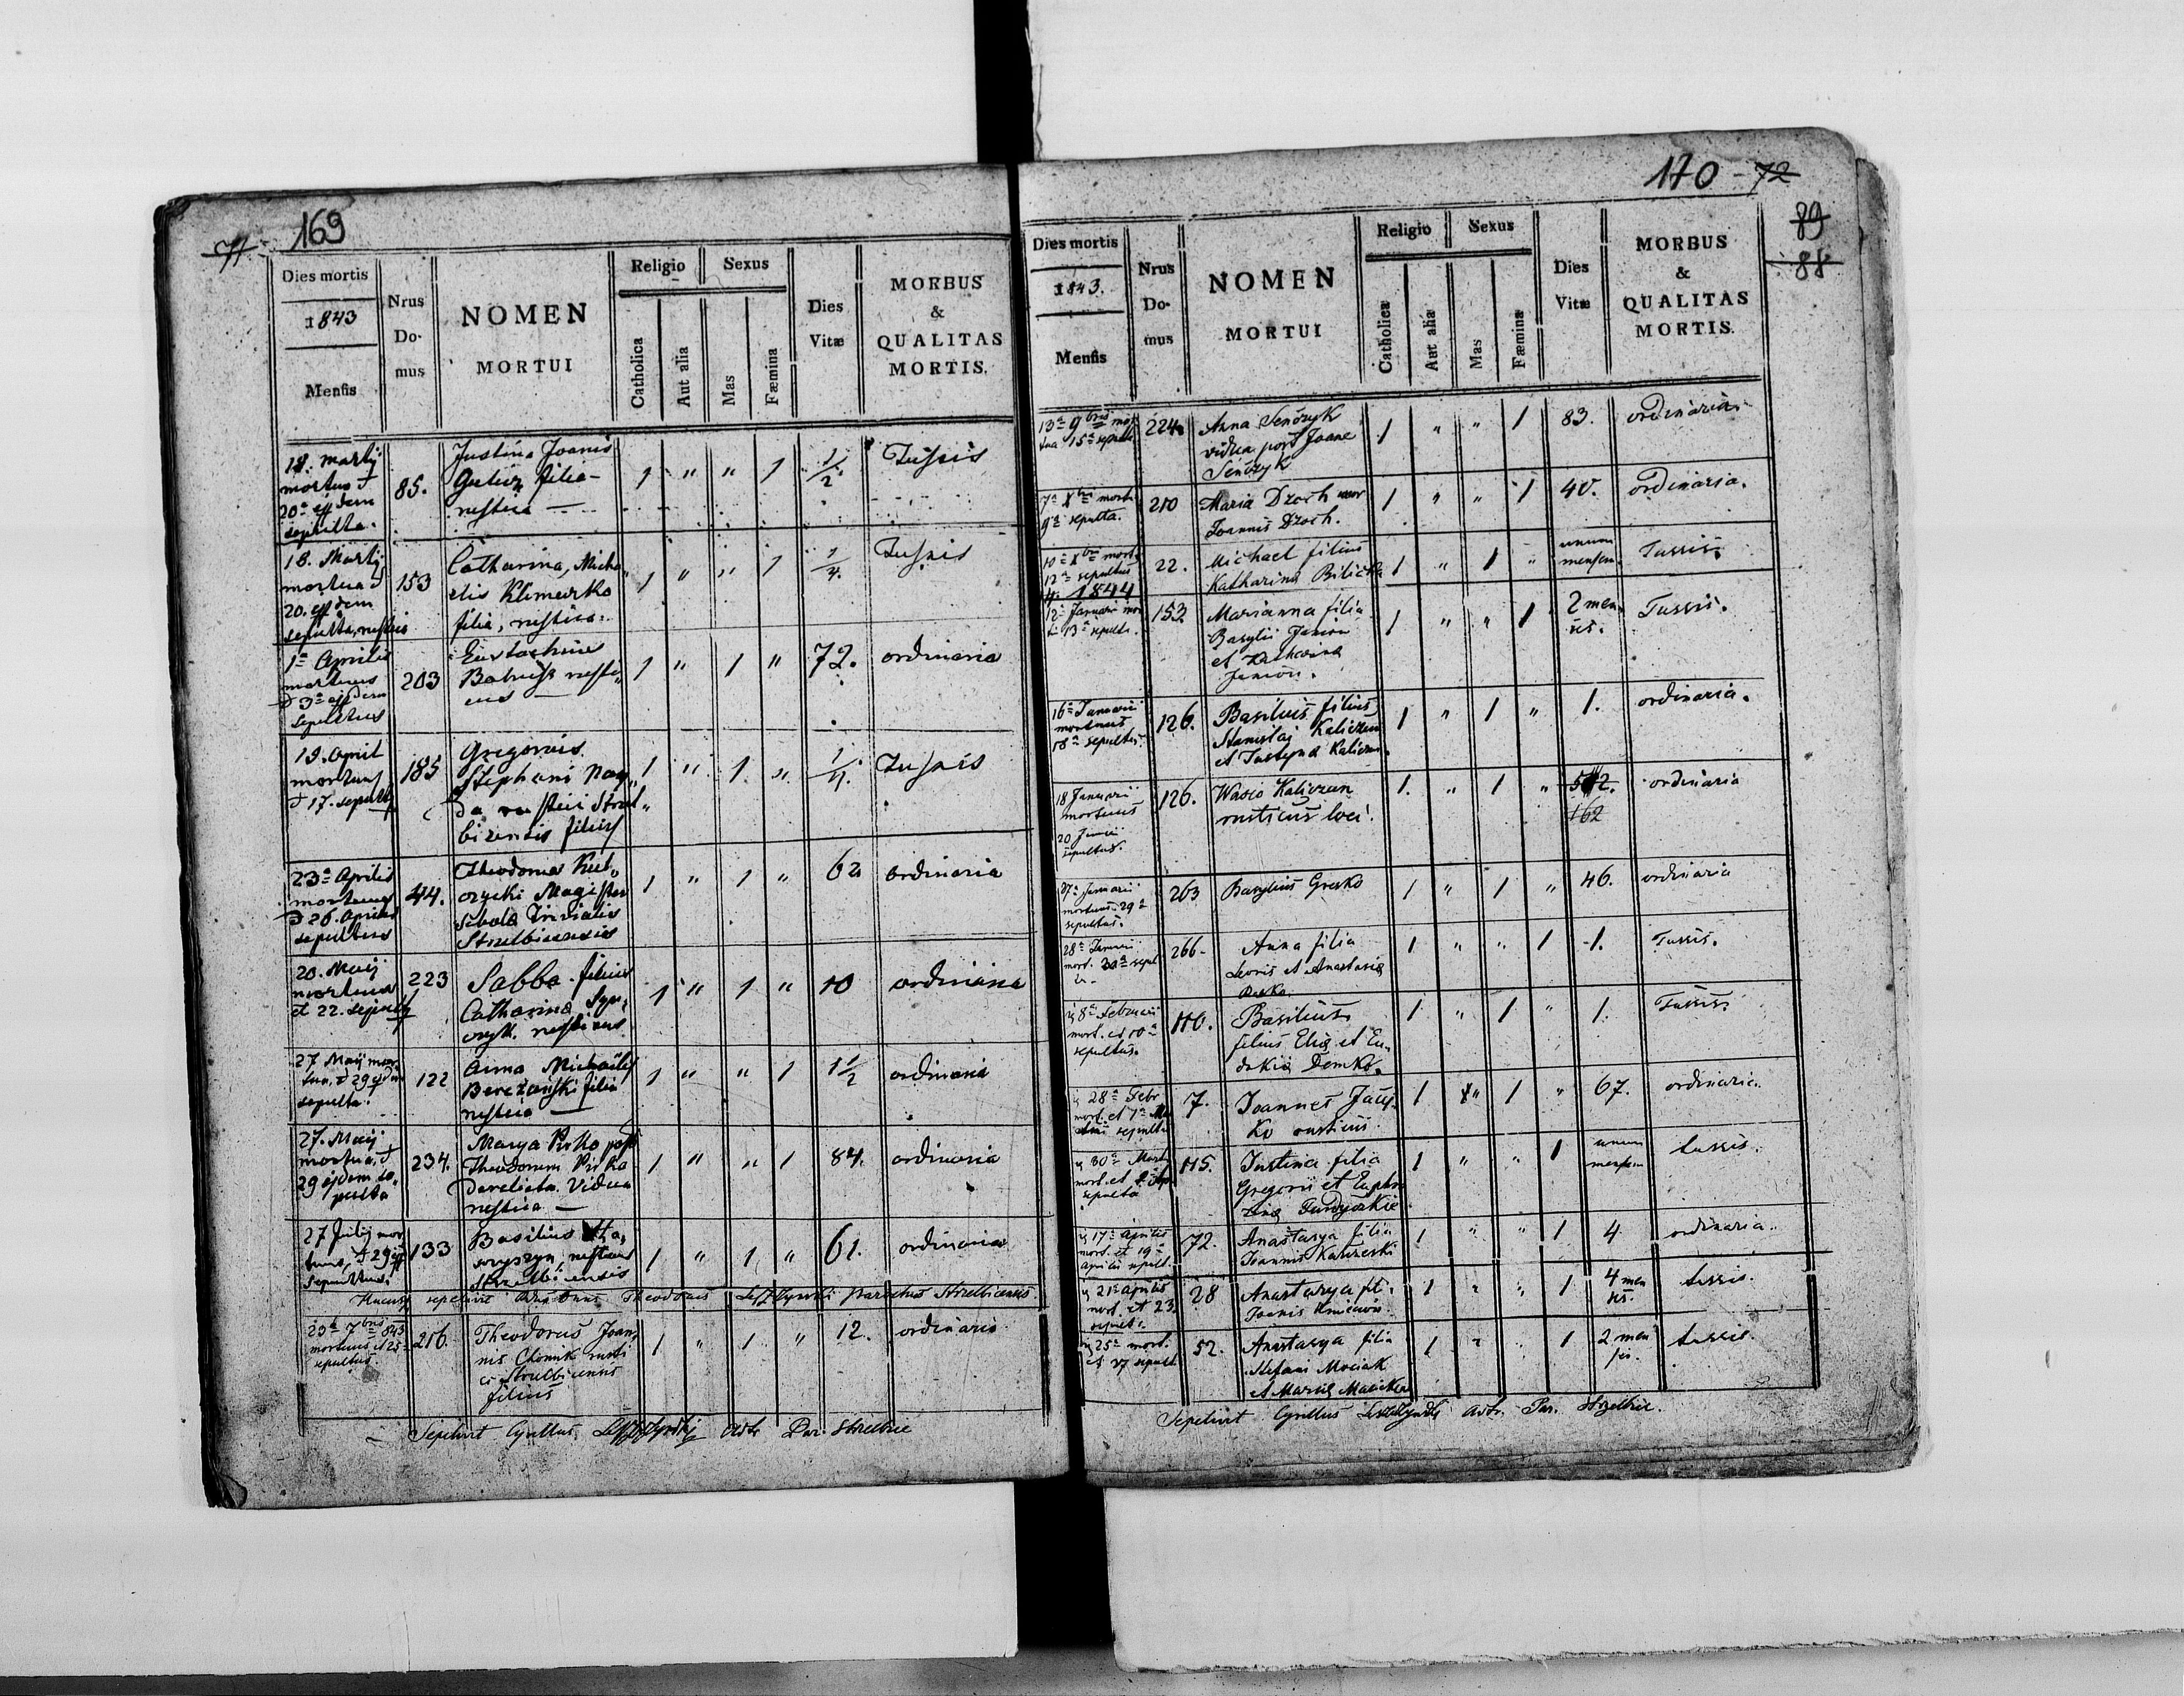 71 169
Dies mortis
1843
Mensis
Nrus
Do-
mus
NOMEN
MORTUI
Religio
Catholica
Aut alia
Sexus
Mas
Fæmina
Dies
Vitæ
MORBUS
&
QUALITAS
MORTIS.
18. Martij
mortua d
20ª ejdem
sepulta.
85.
Justina Joanis
filia
rustica —
1 " " 1 1/2 Tussis
18. Martij
mortua d
20. ejdem
sepulta, rustica
153
Catharina, Micha
elis Klimerko
filia, rustica.
1 " " 1 1/4. Tussis
1ª Aprilis
mortuus
d 3ª ejdem
sepultus
203
Eustachius
rusti
cus —
1 " 1 " 72. ordinaria
mortuus
d 17. sepult
185
Gregorius
Stephani
da rustici Strzel
bicensis filius
1 " 1. " 1/4. Tussis
23ª Aprilis
mortuus
d 26. Aprilis
sepultus
44.
Theodorus Kul
czycki Magister
Schola Trivialis
Strzelbicensis
1 " 1 " 62 ordinaria
20. Maij
mortuus
et 22. sepult
223
Sabba filius
Catharina
rusticus
1 " 1 " 10 ordinaria
27. Maij mor
tua, d 29 ejdem
sepulta.
122
Anna Michaelis
Bereżanski filia
rustica —
1 " " 1 1 1/2 ordinaria
27. Maij
mortua, d
29 ejdem se
pulta
234.
Marya Pirko post
Theodorum Pirko
Derelicta Vidua
rustica —
1 " " 1 84. ordinaria
27 Julij mor
tuus, d 29 ej
sepultus.
133
Basilius
rusticus
Strzelbicensis
1 " 1 " 61. ordinaria
Hucusq sepelivit Theodorus Leszczynski Parochus Strzelbicensis
23ª 7bris 843
mortuus et 25ª
sepultus.
216.
Theodorus Joan
nis Chomik rusti
ci Strzelbicensis
filius
1 " 1 " 12. ordinaria
Sepelivit Cyrillus Leszczynskij Adtr Par. Strzelbice
170 - 72
89
88
Dies mortis
1843.
Mensis
Nrus
Do-
mus
NOMEN
MORTUI
Religio
Catholicæ
Aut aliæ
Sexus
Mas
Fæminæ
Dies
Vitæ
MORBUS
&
QUALITAS
MORTIS.
13ª 9bris mor
tua 15ª sepulta
224
Anna Senczyk
vidua post Joane
Senczyk
1 " " 1 83. ordinaria
7ª Xbris mort.
9ª sepulta.
210
Maria Dzoch uxor
Joannis Dzoch.
1 " " 1 40. ordinaria.
10ª Xbris mort.
12ª sepultus
22.
Michael filius
Katharina Bilicka
1 " 1 " unum
mensem
Tussis.
1844
12ª Januarii mor
13ª sepulta.
153
Marianna filia
Basylii
et Katharina
1 " " 1 2 men
ses.
Tussis.
16ª Januarii
mortuus
18ª sepultus
126.
Basilius filius
Stanislai Kaliczun
et Kaliczun
1 " 1 " 1. ordinaria.
18 Januarii
mortuus
20
sepultus.
126.
Wasio Kaliczun
rusticus loci.
1. " 1 " 162 ordinaria
27ª Januarii
mortuus 29ª
sepultus.
263
Basylius Gresko
1 " 1 " 46. ordinaria
28ª
mort. 30ª sepul
ta.
266.
Anna filia
Leonis et Anastasia
1 " " 1 1. Tussis.
8ª Februarii
mort. et 10ª
sepultus.
110.
Basilius
filius Elia et Eu
dokia Demko.
1 " 1 " 1. Tussis.
28ª Febr
mort. et 1ª
sepultus
7.
Joannes Jacy
ko rusticus.
1 " 1 " 67. ordinaria.
30ª Mart
mort. et
sepulta
115.
Justina filia
Gregorii et Euphro
zina
1 " " 1 unum
mensem
tussis.
17ª Aprilis
mort. et 19ª
Aprilis sepult.
72.
Anastasya filia
Joannis
1 " " 1 4 ordinaria.
21ª Aprilis
mort. et 23
sepult.
28
Anastasya fil.
Joanis
1 " " 1 4 men
ses.
tussis.
25ª mort.
et 27 sepult.
52.
Anastasya filia
Stefani Maciak
et Maria
1 " " 1 2 men
ses.
tussis.
Sepelivit Cyrillus Leszczynskij Adtr. Par. Strzelbice.